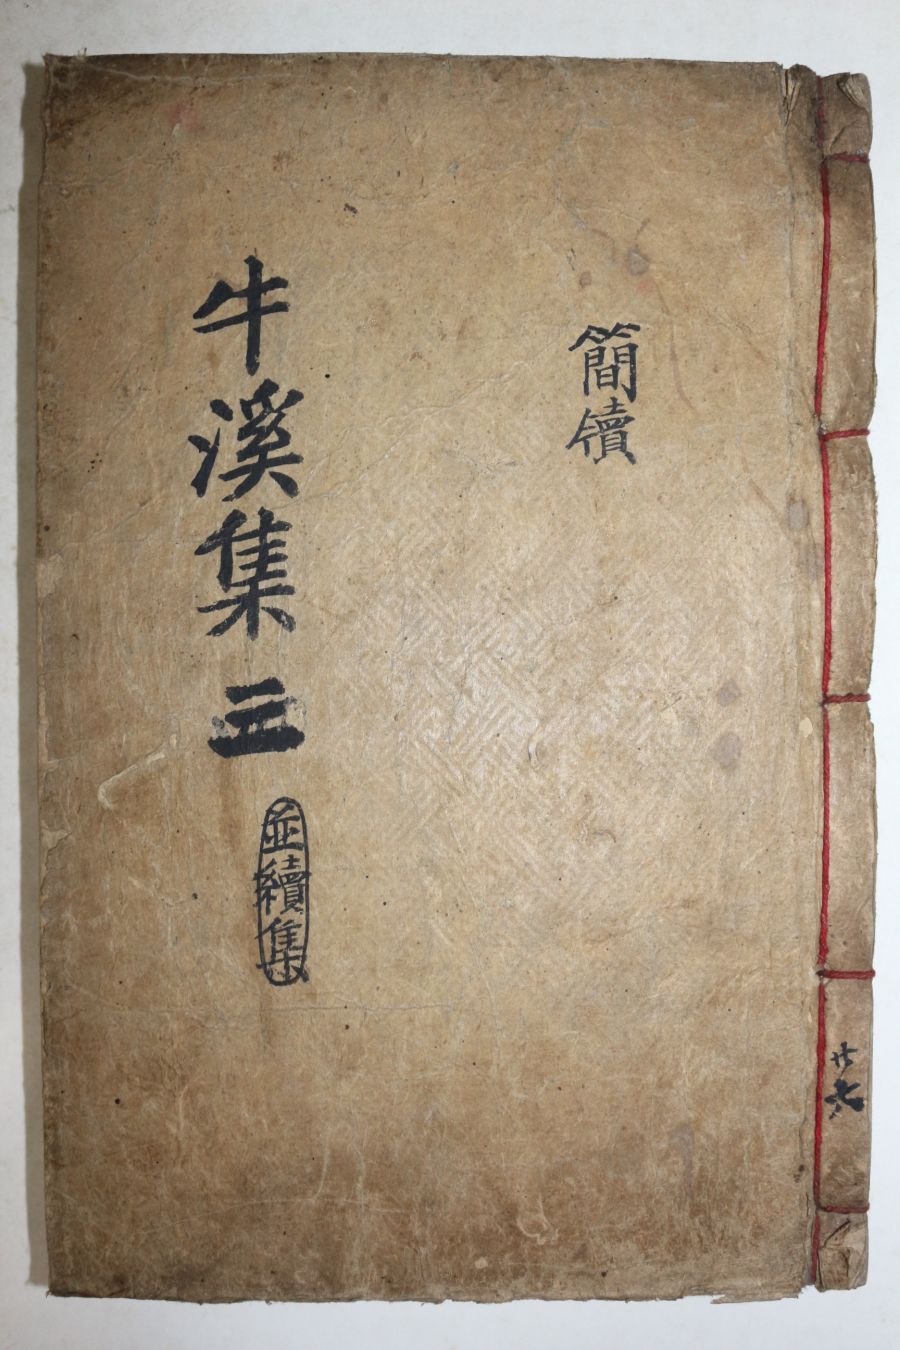 簡牘
牛溪集 三
並續集
共六